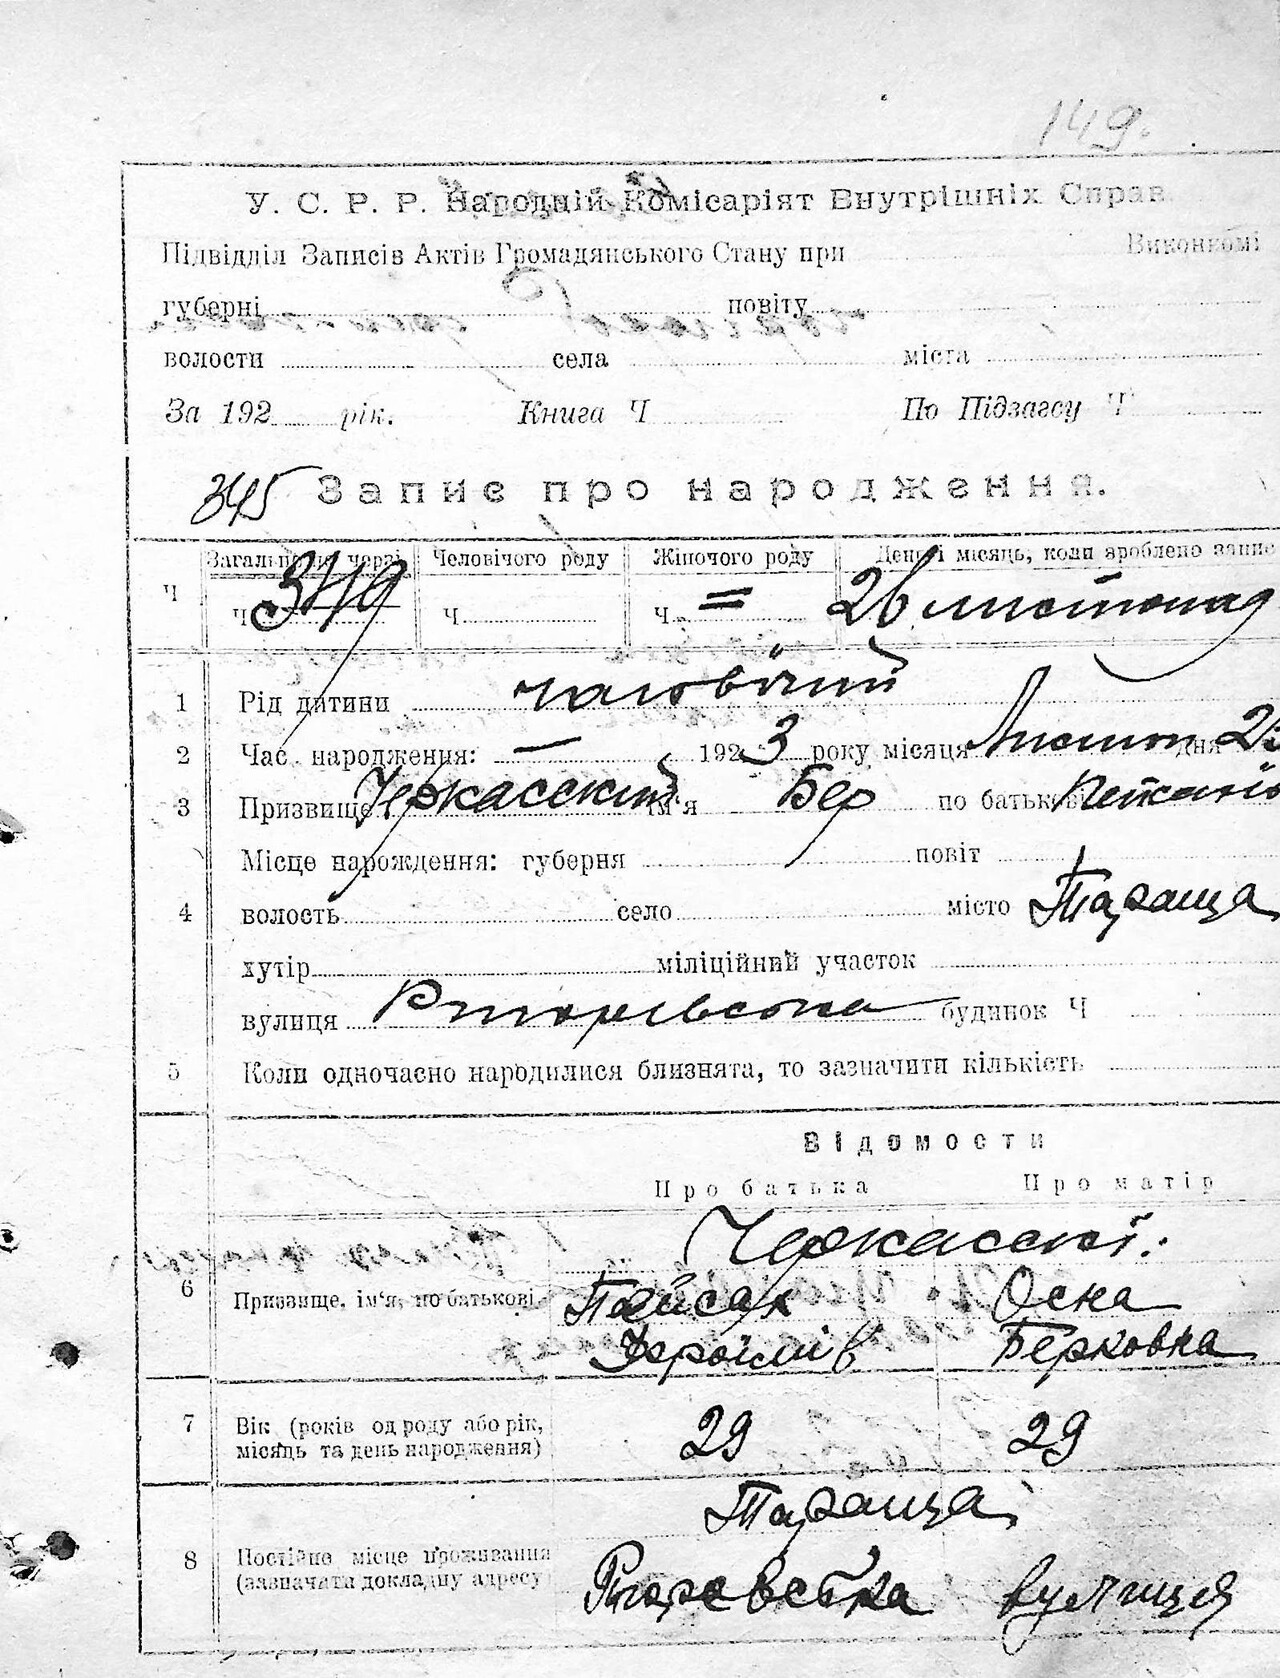 149.
У. С. Р. Р. Народній Комісаріят Внутрішніх Справ
Підвідділ Записів Актів Громадянського Стану при Виконкомі
губерні повіту
волости села міста
За 192 рік. Книга Ч По Підзагсу Ч
345 Запис про народження.
Загальн черзі Человічого роду Жіночого роду День і місяць, коли зроблено запис
Ч Ч 349 Ч Ч = 26 листопад
1 Рід дитини чоловічий
2 Час народження: — 1923 року місяця Листоп дня
3 Призвище Черкасский ім'я Бер по батькові
Місце нарождення: губерня повіт
4 волость село місто Тараща
хутір міліційний участок
вулиця будинок Ч
5 Коли одночасно народилися близнята, то зазначити кількість
Відомости
Про батька Про матір
Черкасскі:
6 Призвище, ім'я, по батькові Пейсах Осна
Берковна
7 Вік (років од роду або рік, 29 29
місяць та день народження)
Тараща
8 Постійне місце проживання
(зазначити докладну адресу) вулиця